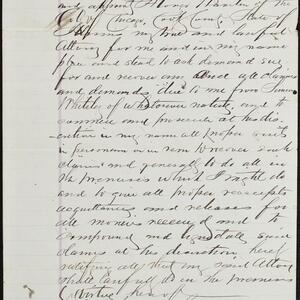 and appoint Alonzo W
City of Chicago, Cook County State of
my true and lawful
Attorny for me and in my name
place and stead to ask demand sue
for and recover any and all claims
and demands due to me from
of whatsoever nature and to
commence and prosecute at his dis-
cretion in my name all proper suits
in personam or in rem to recover such
claims and generally to do all in
the premises which I might do
and to give all proper receipts
acquittances and releases for
all moneys received and to
compound and liquidate said
claims at his discretion hereby
ratifying all that my said Attorny
shall lawfully do in the premises
by virtue hereof